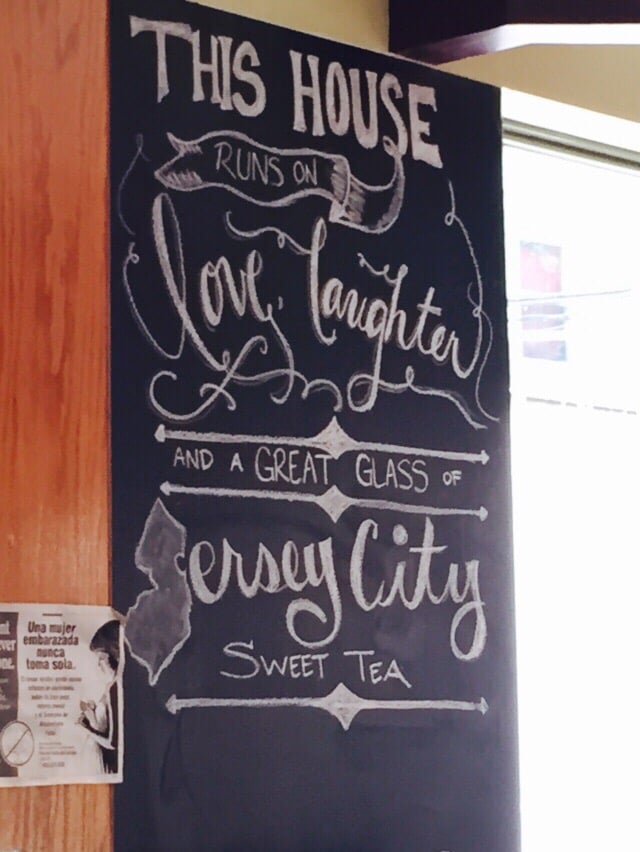 THIS HOUSE
RUNS ON
love, laughter
AND A GREAT GLASS OF
ersey City
SWEET TEA
Una mujer
embarazada
nunca
toma sola.